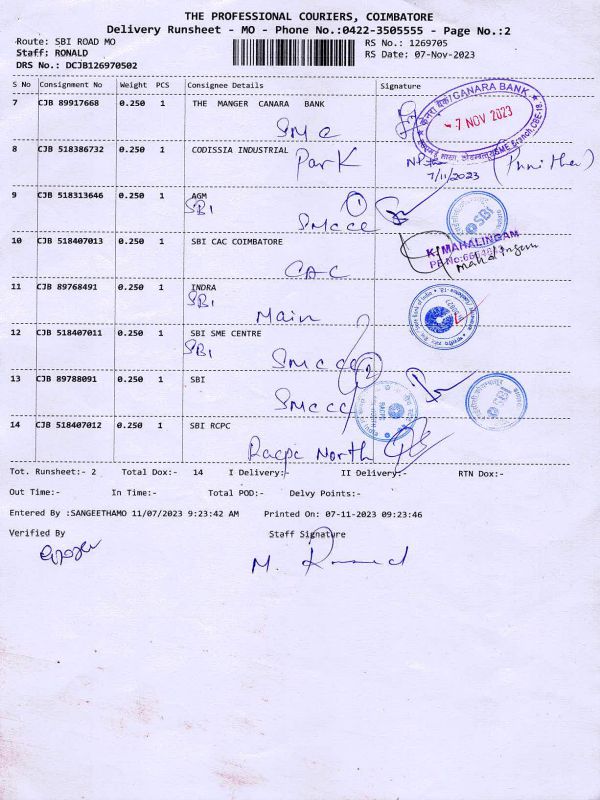 THE PROFESSIONAL COURIERS, COIMBATORE
Delivery Runsheet - MO - Phone No.:0422-3505555 - Page No.:2
Route: SBI ROAD MO
RS No.: 1269705
Staff: RONALD
RS Date: 07-Nov-2023
DRS No.: DCJB126970502
S No Consignment No Weight PCS Consignee Details Signature
7 CJB 89917668 0.250 1 THE MANGER CANARA BANK
SMC
CANARA BANK
- 7 NOV 2023
8 CJB 518386732 0.250 1 CODISSIA INDUSTRIAL
Park
7/11/2023
9 CJB 518313646 0.250 1 AGM
SBI
1
SMCCC
SBI
10 CJB 518407013 0.250 1 SBI CAC COIMBATORE
CAC
K. MAHALINGAM
Mahalingam
11 CJB 89768491 0.250 1 INDRA
SBI
Main
12 CJB 518407011 0.250 1 SBI SME CENTRE
SBI
SMCCC
2
13 CJB 89788091 0.250 1 SBI
SMCCC
SBI
14 CJB 518407012 0.250 1 SBI RCPC
Racpc North
Tot. Runsheet:- 2 Total Dox:- 14 I Delivery:- II Delivery:- RTN Dox:-
Out Time:- In Time:- Total POD:- Delvy Points:-
Entered By :SANGEETHAMO 11/07/2023 9:23:42 AM Printed On: 07-11-2023 09:23:46
Verified By Staff Signature